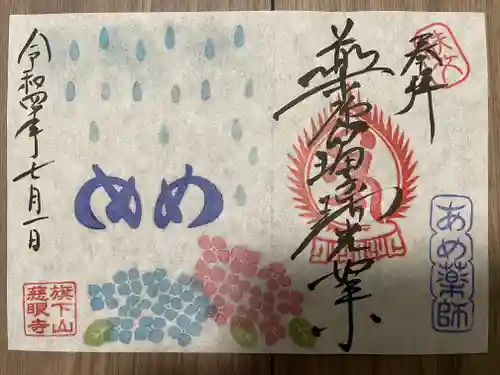 奉拝
薬師瑠璃光如来
あめ薬師
め
令和四年七月一日
旗下山
慈眼寺